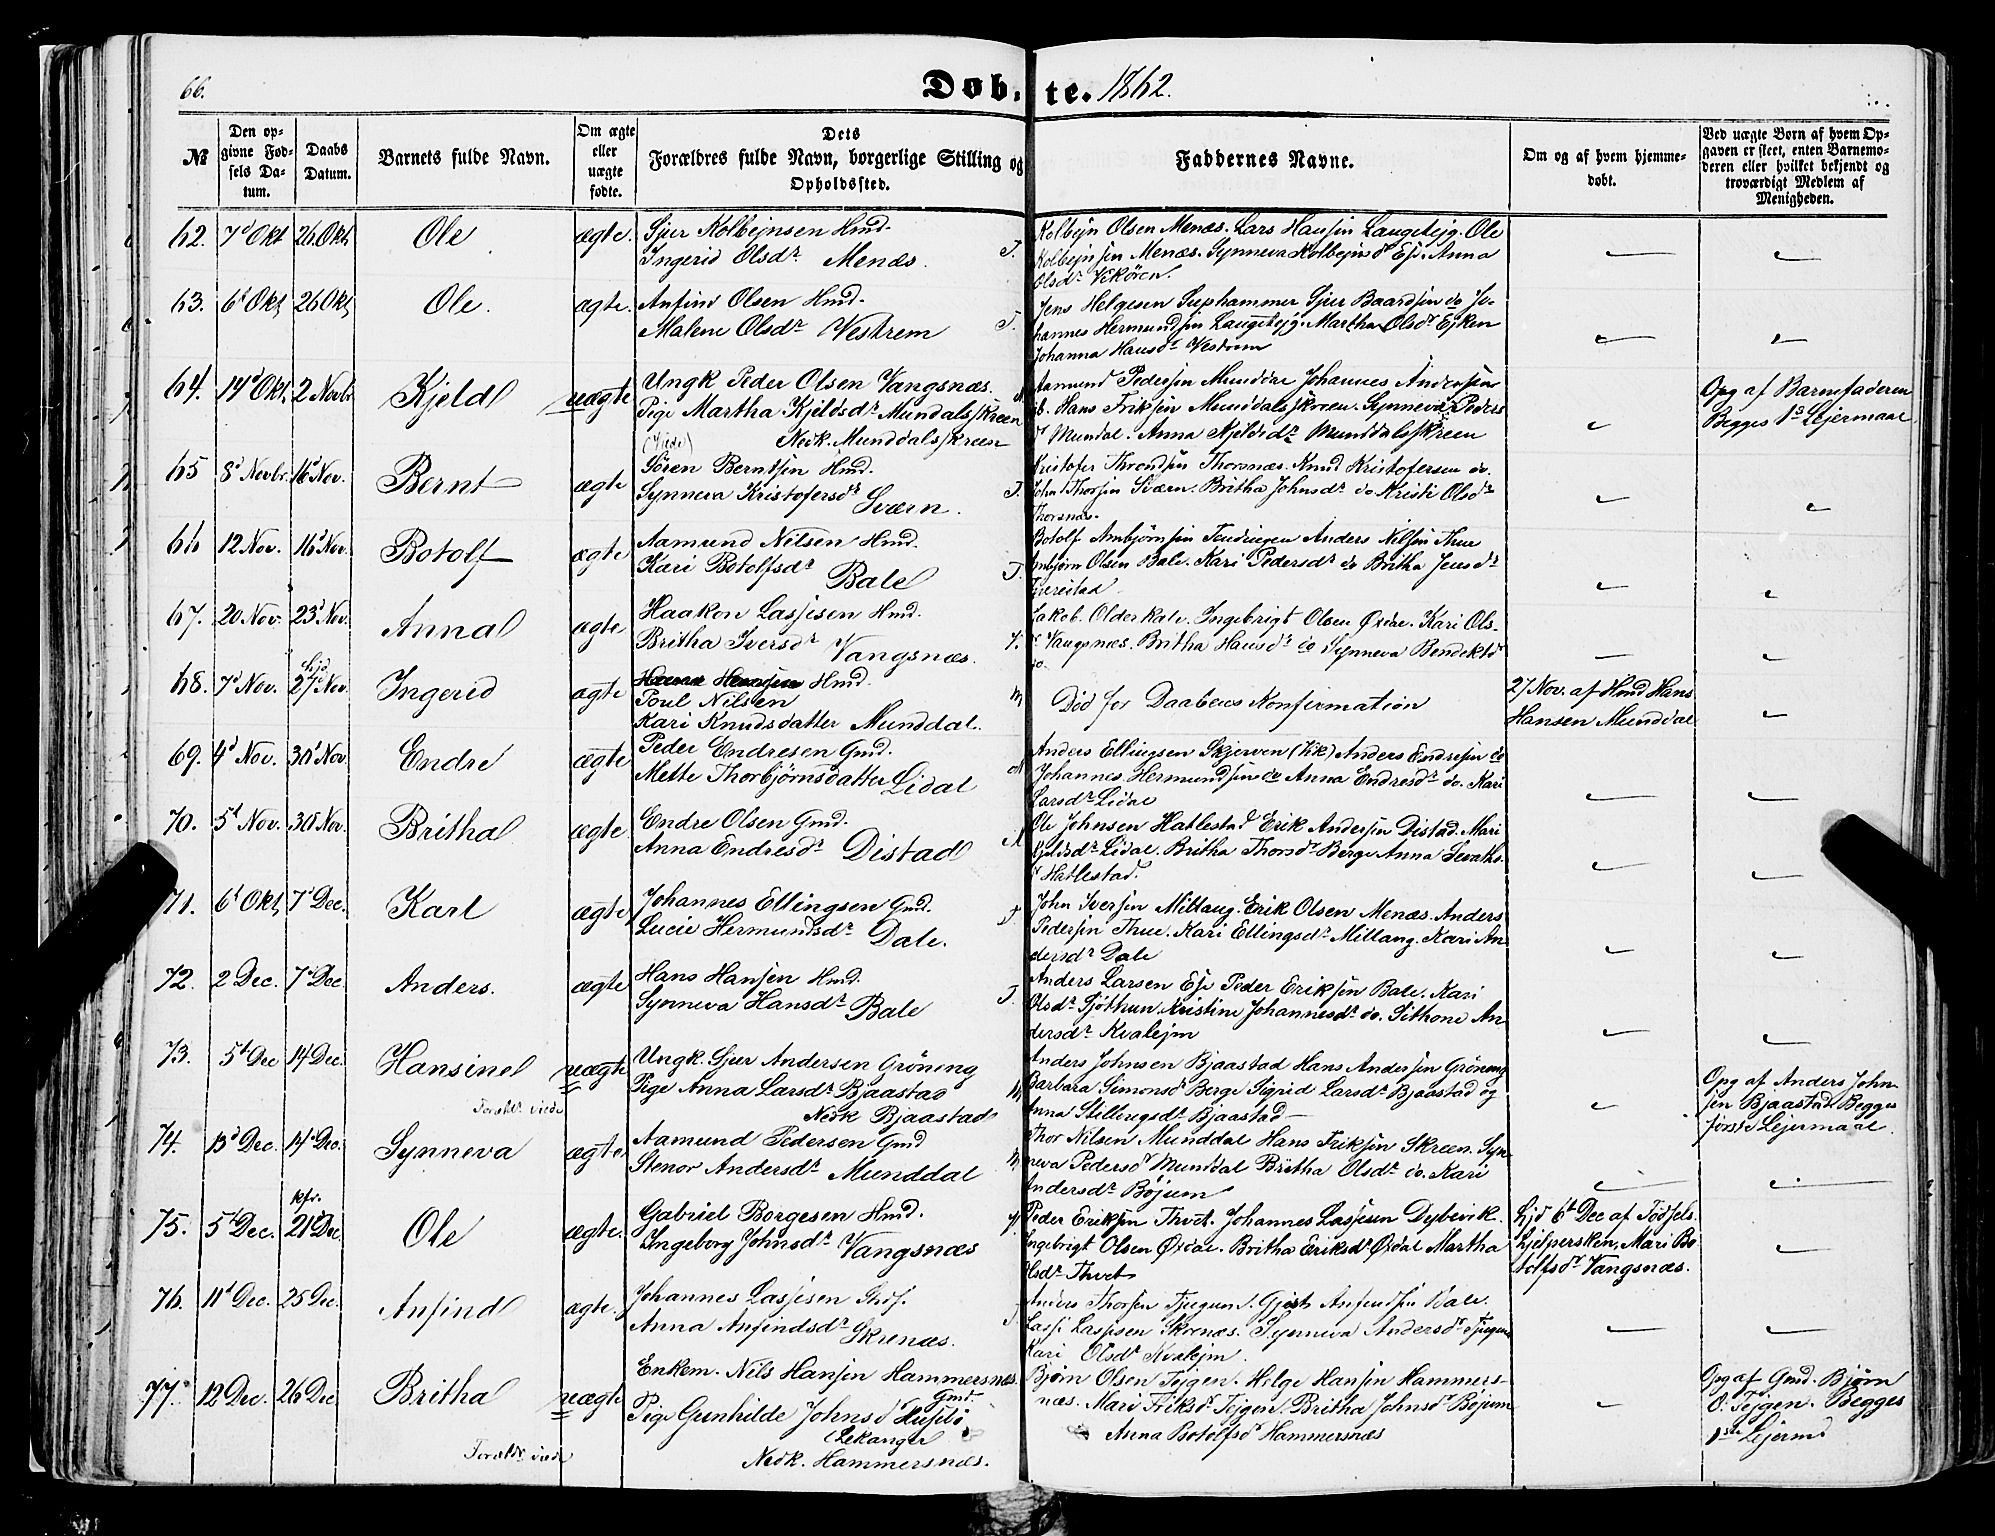 66.
Døb-te. 1862.
№
Den opgivne Fødsels Datum.
Daabs Datum.
Barnets fulde Navn.
Om ægte eller uægte fødte.
Dets Forældres fulde Navn, borgerlige Stilling og Opholdssted.
Faddernes Navne.
Om og af hvem hjemmedøbt.
Ved uægte Børn af hvem Opgaven er skeet, enten Barnemoderen eller hvilket bekjendt og troværdigt Medlem af Menigheden.
62. 7d Okt 26 Okt Ole ægte.
Sjur Kolbejnsen Hmd.
Ingerid Olsdr Menæs.
Kolbejn Olsen Menæs. Lars Hansen Langetejg. Ole
Kolbejnsen Menæs. Synneva Kolbejnsdr Ese. Anna
Olsdr Vikøren.
63. 6d Okt 26 Okt Ole. ægte.
Anfind Olsen Hmd.
Malene Olsdr Vestrem
Jens Helgesen Suphammer Sjur Baardsen do Jo-
hannes Hermundsen Langetejg. Martha Olsdr Ejken
Johanna Hansdr Vestrem
64. 14d Okt. 2 Novbr Kjeld uægte
Ungk Peder Olsen Vangsnæs.
Pige Martha Kjeldsdr Mundalsskreen
Nedk. Munddalsskreen
Aamund Pedersen Munddal Johannes Andersen
do. Hans Friksen Munddalsskreen. Synneva Peders
dr Mundal. Anna Kjeldsdr Munddalsskreen
Opg af Barnefaderen
Begges 1s Lejermaal
65 8d Novbr. 16d Nov. Bernt ægte
Sören Berntsen Hmd.
Synneva Kristofersdr Sværn.
Kristofer Throndsen Thorsnæs. Knud Kristofersen do.
John Thorsen Sværn. Britha Johnsdr do Kristi Olsdr
Thorsnæs.
66 12 Nov. 16d Nov. Botolf ægte
Aamund Nilsen Hmd.
Kari Botolfsdr Bale
Botolf Ambjörnsen Anders Nilsen Thue
Ambjörn Olsen Bale. Kari Pedersdr do Britha Jensdr
67. 20 Nov. 23d Nov. Anna ægte
Haakon Lassesen Hmd.
Britha Iversdr Vangsnæs.
Jakob Olderkale. Ingebrigt Olsen Øvdre. Kari Ols-
dr Vangsnæs. Britha Hansdr do Synneva Bendiktsdr
do.
68. 7d Nov. hjd 27d Nov. Ingerid ægte
Hmd.
Poul Nilsen
Kari Knudsdatter Munddal.
Död för Daabens Konfirmation
27 Nov. af Hmd Hans
Hansen Munddal
69. 4d Nov. 30d Nov. Endre ægte
Peder Endresen Gmd.
Mette Thorbjörnsdatter Lidal
Anders Ellingsen Skjerven (Vik) Anders Endresen do
Johannes Hermundsen do Anna Endresdr do. Kari
Larsdr Lidal
70. 5d Nov. 30d Nov. Britha ægte
Endre Olsen Gmd.
Anna Endresdr Distad
Ole Johnsen Hatlestad Erik Andersen Distad. Mari
Kjeldsdr Lidal. Britha Thorsdr Berge Anna Sevats
dr Hatlestad.
71. 6d Okt 7d Dec. Karl ægte
Johannes Ellingsen Gmd.
Lucie Hermundsdr Dale.
John Iversen Millaug. Erik Olsen Menæs. Anders
Pedersen Thue. Kari Ellingsdr Millang. Kari An-
dersdr Dale
72. 2 Dec. 7d Dec. Anders. ægte
Hans Hansen Hmd.
Synneva Hansdr Bale
Anders Larsen Ese Peder Eriksen Bale. Kari
Olsdr Sjöthun. Kristine Johannesdr do. Sithone An-
dersdr Kvalejm
73. 5d Dec 14d Dec. Hansine uægte
Forældr viede
Ungk. Sjur Andersen Gröning
Pige Anna Larsdr Bjaastad
Nedk Bjaastad
Anders Johnsen Bjaastad Hans Andersen Gröning
Barbara Simonsdr Berge Sigrid Larsdr Bjaastad og
Anna Bjaastad
Opg af Anders John-
sen Bjaastad. Begges
förste Lejermaal.
74. 13d Dec. 14d Dec. Synneva ægte
Aamund Pedersen Gmd
Stenor Andersdr Munddal
Thor Nilsen Munddal Hans Friksen Skreen. Syn-
neva Pedersdr Munddal Britha Olsdr do. Kari
Andersdr Böjum
75. 5d Dec. kfr. 21d Dec. Ole ægte.
Gabriel Borgesen Hmd.
Ingeborg Johnsdr Vangsnæs
Peder Eriksen Thvet. Johannes Lassesen Dybevik.
Ingebrigt Olsen Øvdal. Britha Eriksdr Øvdal Martha
Olsdr Thvet
hjd 6d Dec af Födsels-
hjelpersken, Mari Bo-
tolfsdr Vangsnæs.
76. 11d Dec. 25 Dec. Anfind ægte.
Johannes Lassesen Strf.
Anna Anfindsdr Skrenæs.
Anders Thorsen Tjugum. Gjert Anfindsen Bale.
Lasse Lassesen Skrenæs. Synneva Andersdr Tjugum
Kari Olsdr Kvalejm.
77. 12 Dec. 26 Dec Britha uægte
Forældr viede
Enkem. Nils Hansen Hammersnæs.
Gmd.
Pige Gunhilde Johnsd Husebö
(Lekanger)
Nedk. Hammersnæs.
Bjørn Olsen Tejgen. Helge Hansen Hammers-
næs. Mari Friksdr Tejgen. Britha Johnsdr Böjum
Anna Botolfsdr Hammersnæs
Opg af Gmd. Bjørn
O. Tejgen. Begges
1ste Lejermd